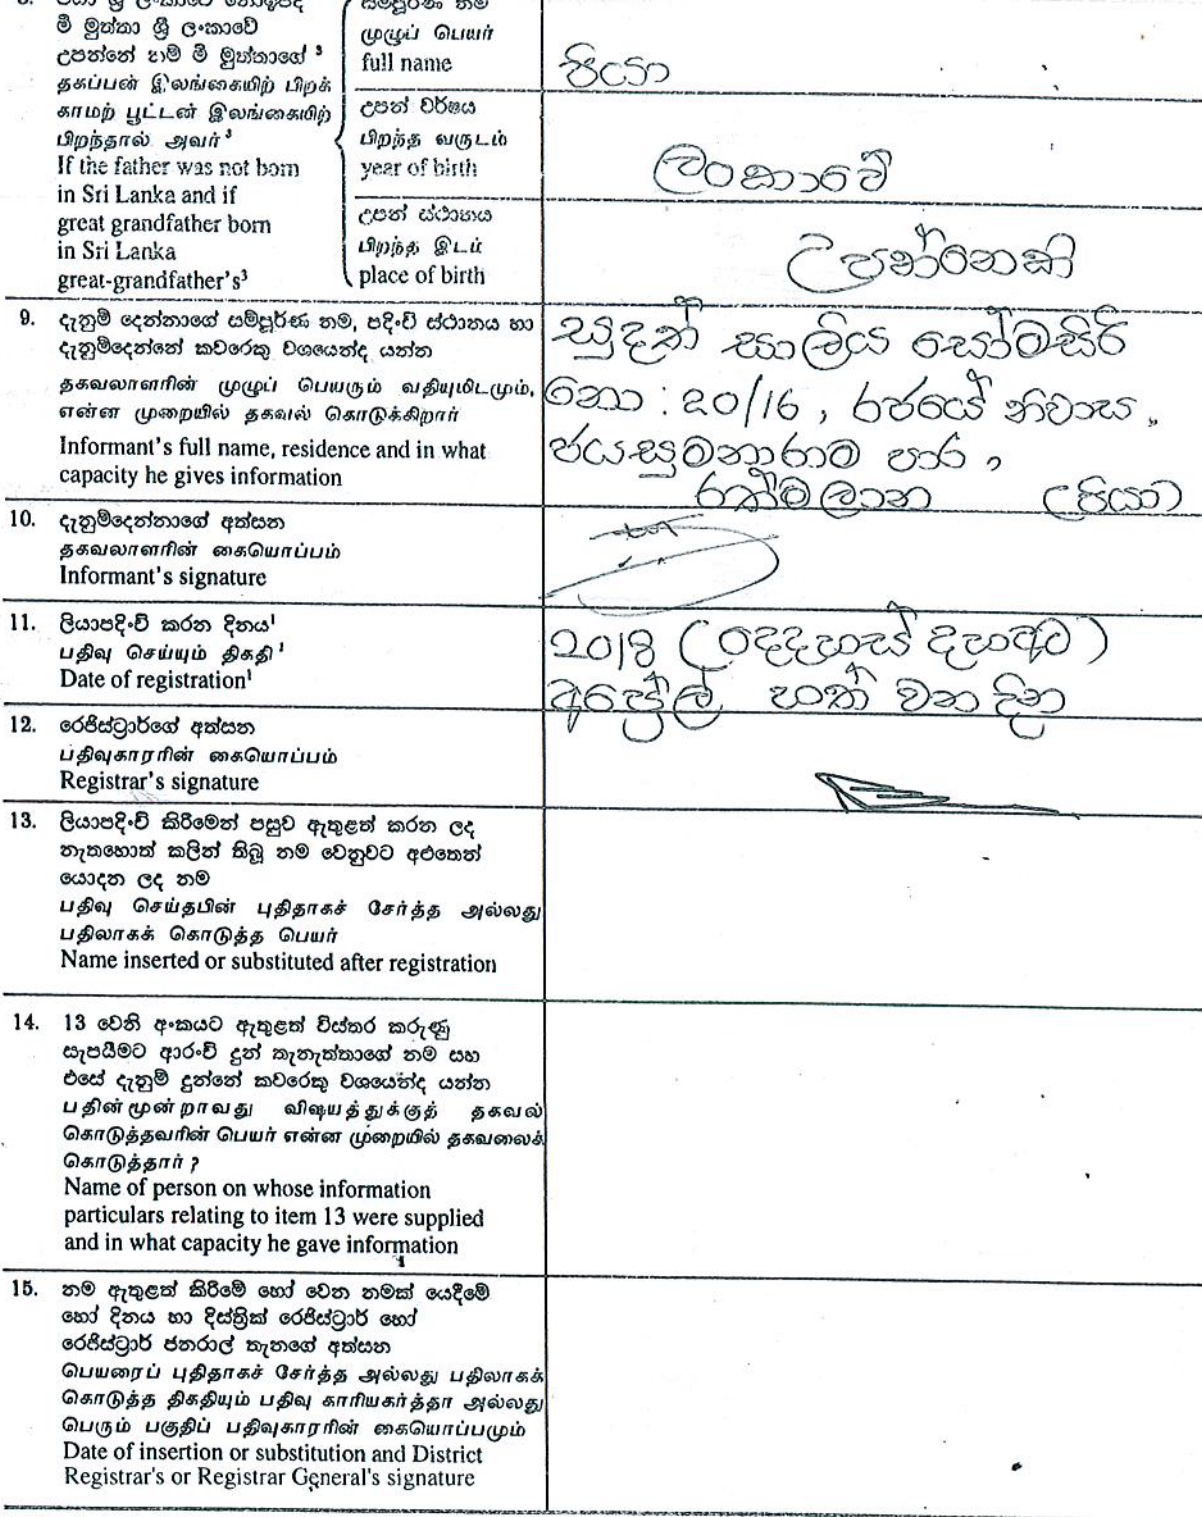 මී මුත්තා ශ්‍රී ලංකාවේ
උපන්නේ නම් මී මුත්තාගේ ³
தகப்பன் இலங்கையிற் பிறக்
காமற் பூட்டன் இலங்கையிற்
பிறந்தால் அவர் ³
If the father was not born
in Sri Lanka and if
great grandfather born
in Sri Lanka
great-grandfather's³
සම්පූර්ණ නම
முழுப் பெயர்
full name
පියා
උපන් වර්ෂය
பிறந்த வருடம்
year of birth
ලංකාවේ
උපන් ස්ථානය
பிறந்த இடம்
place of birth
උපන්නෙකි
9. දැනුම් දෙන්නාගේ සම්පූර්ණ නම, පදිංචි ස්ථානය හා
දැනුම්දෙන්නේ කවරෙකු වශයෙන්ද යන්න
தகவலாளரின் முழுப் பெயரும் வதியுமிடமும்,
என்ன முறையில் தகவல் கொடுக்கிறார்
Informant's full name, residence and in what
capacity he gives information
සුදත් සාලිය සෝමසිරි
නො : 20/16, රජයේ නිවාස,
ජයසුමනාරාම පාර,
රත්මලාන පියා
10. දැනුම්දෙන්නාගේ අත්සන
தகவலாளரின் கையொப்பம்
Informant's signature
11. ලියාපදිංචි කරන දිනය¹
பதிவு செய்யும் திகதி ¹
Date of registration¹
2018 (දෙදහස් දහඅට)
අප්‍රේල් හත් වන දින
12. රෙජිස්ට්‍රාර්ගේ අත්සන
பதிவுகாரரின் கையொப்பம்
Registrar's signature
13. ලියාපදිංචි කිරීමෙන් පසුව ඇතුළත් කරන ලද
නැතහොත් කලින් තිබූ නම වෙනුවට අළුතෙන්
යොදන ලද නම
பதிவு செய்தபின் புதிதாகச் சேர்த்த அல்லது
பதிலாகக் கொடுத்த பெயர்
Name inserted or substituted after registration
14. 13 වෙනි අංකයට ඇතුළත් විස්තර කරුණු
සැපයීමට ආරංචි දුන් තැනැත්තාගේ නම සහ
එසේ දැනුම් දුන්නේ කවරෙකු වශයෙන්ද යන්න
பதின்மூன்றாவது விஷயத்துக்குத் தகவல்
கொடுத்தவரின் பெயர் என்ன முறையில் தகவலைக்
கொடுத்தார் ?
Name of person on whose information
particulars relating to item 13 were supplied
and in what capacity he gave information
15. නම ඇතුළත් කිරීමේ හෝ වෙන නමක් යෙදීමේ
හෝ දිනය හා දිස්ත්‍රික් රෙජිස්ට්‍රාර් හෝ
රෙජිස්ට්‍රාර් ජනරාල් තැනගේ අත්සන
பெயரைப் புதிதாகச் சேர்த்த அல்லது பதிலாகக்
கொடுத்த திகதியும் பதிவு காரியகர்த்தா அல்லது
பெரும் பகுதிப் பதிவுகாரரின் கையொப்பமும்
Date of insertion or substitution and District
Registrar's or Registrar General's signature